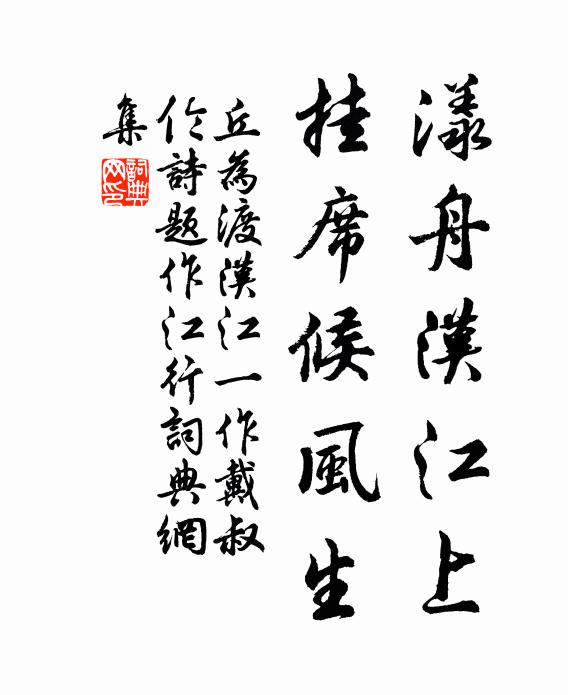 漾舟漢江上
挂席候風生
丘為渡漢江一作戴叔
伦詩題作江行詞典網
集
詞典
网印